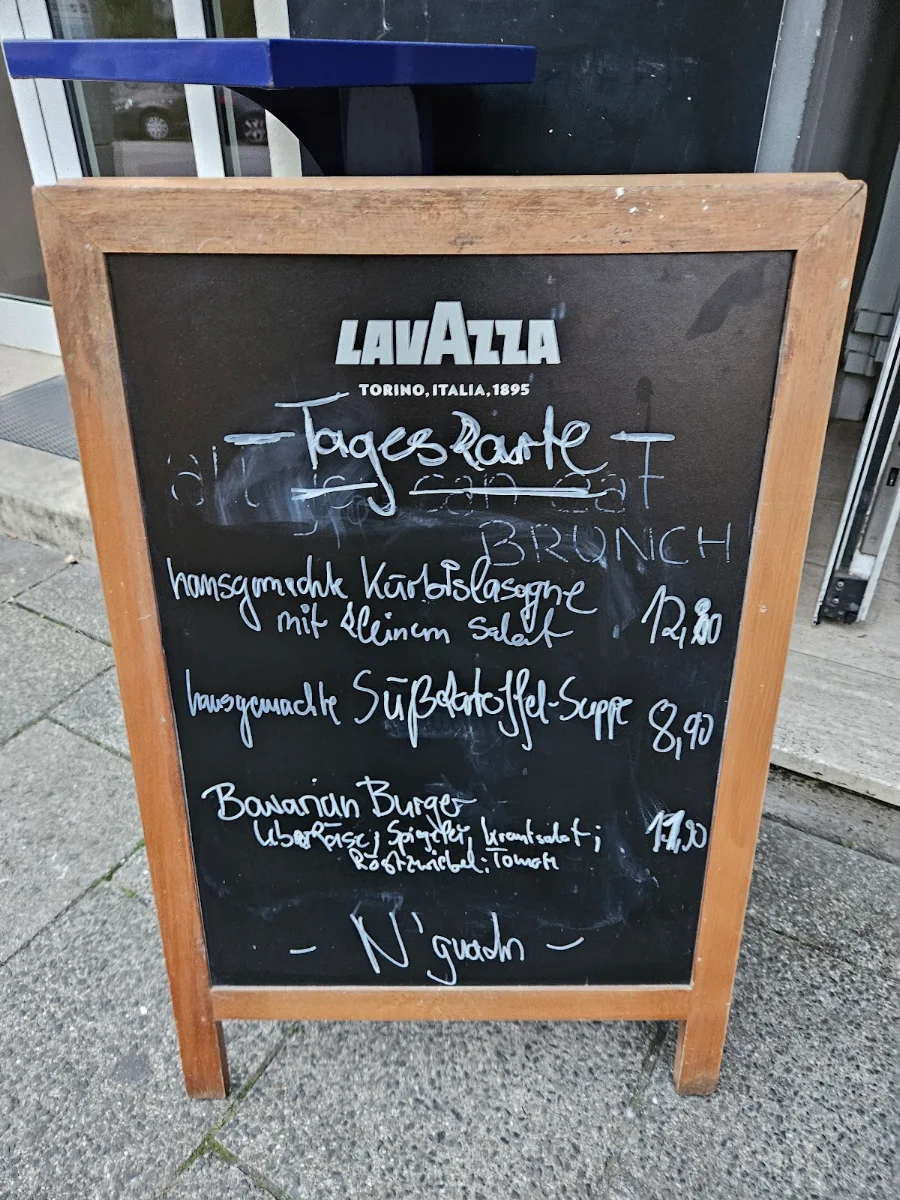 LAVAZZA
TORINO, ITALIA, 1895
- Tageskarte -
all you can eat
BRUNCH
hausgemachte Kürbislasagne
mit kleinem Salat 12,80
hausgemachte Süßkartoffel-Suppe 8,90
Bavarian Burger
Leberkäse, Spiegelei, Krautsalat; 11,90
Röstzwiebel; Tomate
- N'guadn -